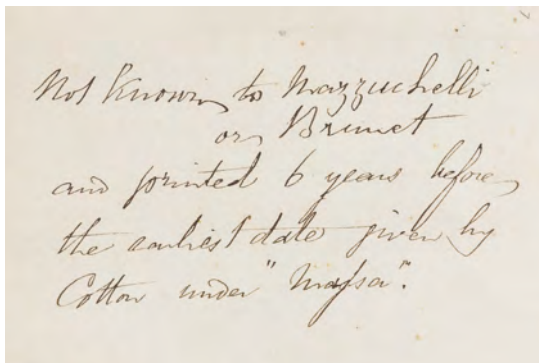 Not known to Mazzuchelli
or Brunet
and printed 6 years before
the earliest date given by
Cotton under "Massa".